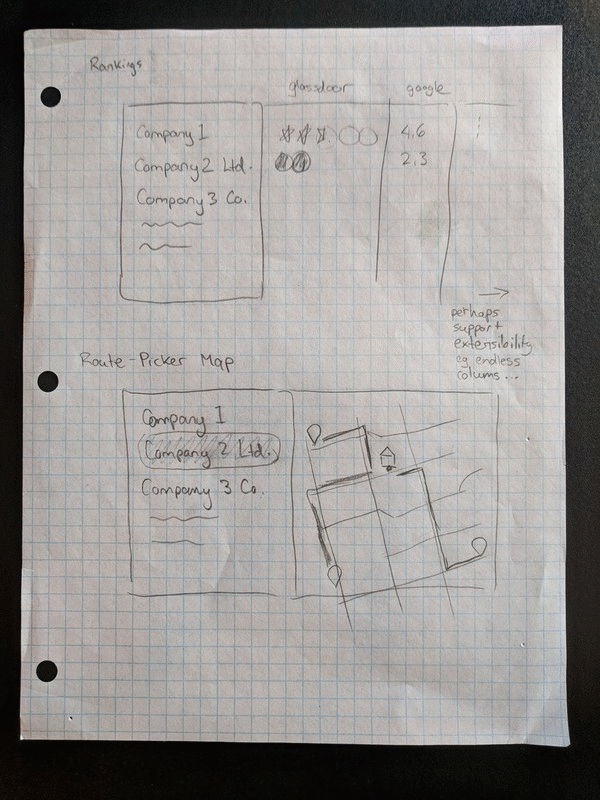 Rankings
glassdoor google
Company 1 4,6
Company 2 Ltd. 2,3
Company 3 Co.
perhaps
support
extensibility
eg endless
colums ...
Route-Picker Map
Company 1
Company 2 Ltd.
Company 3 Co.